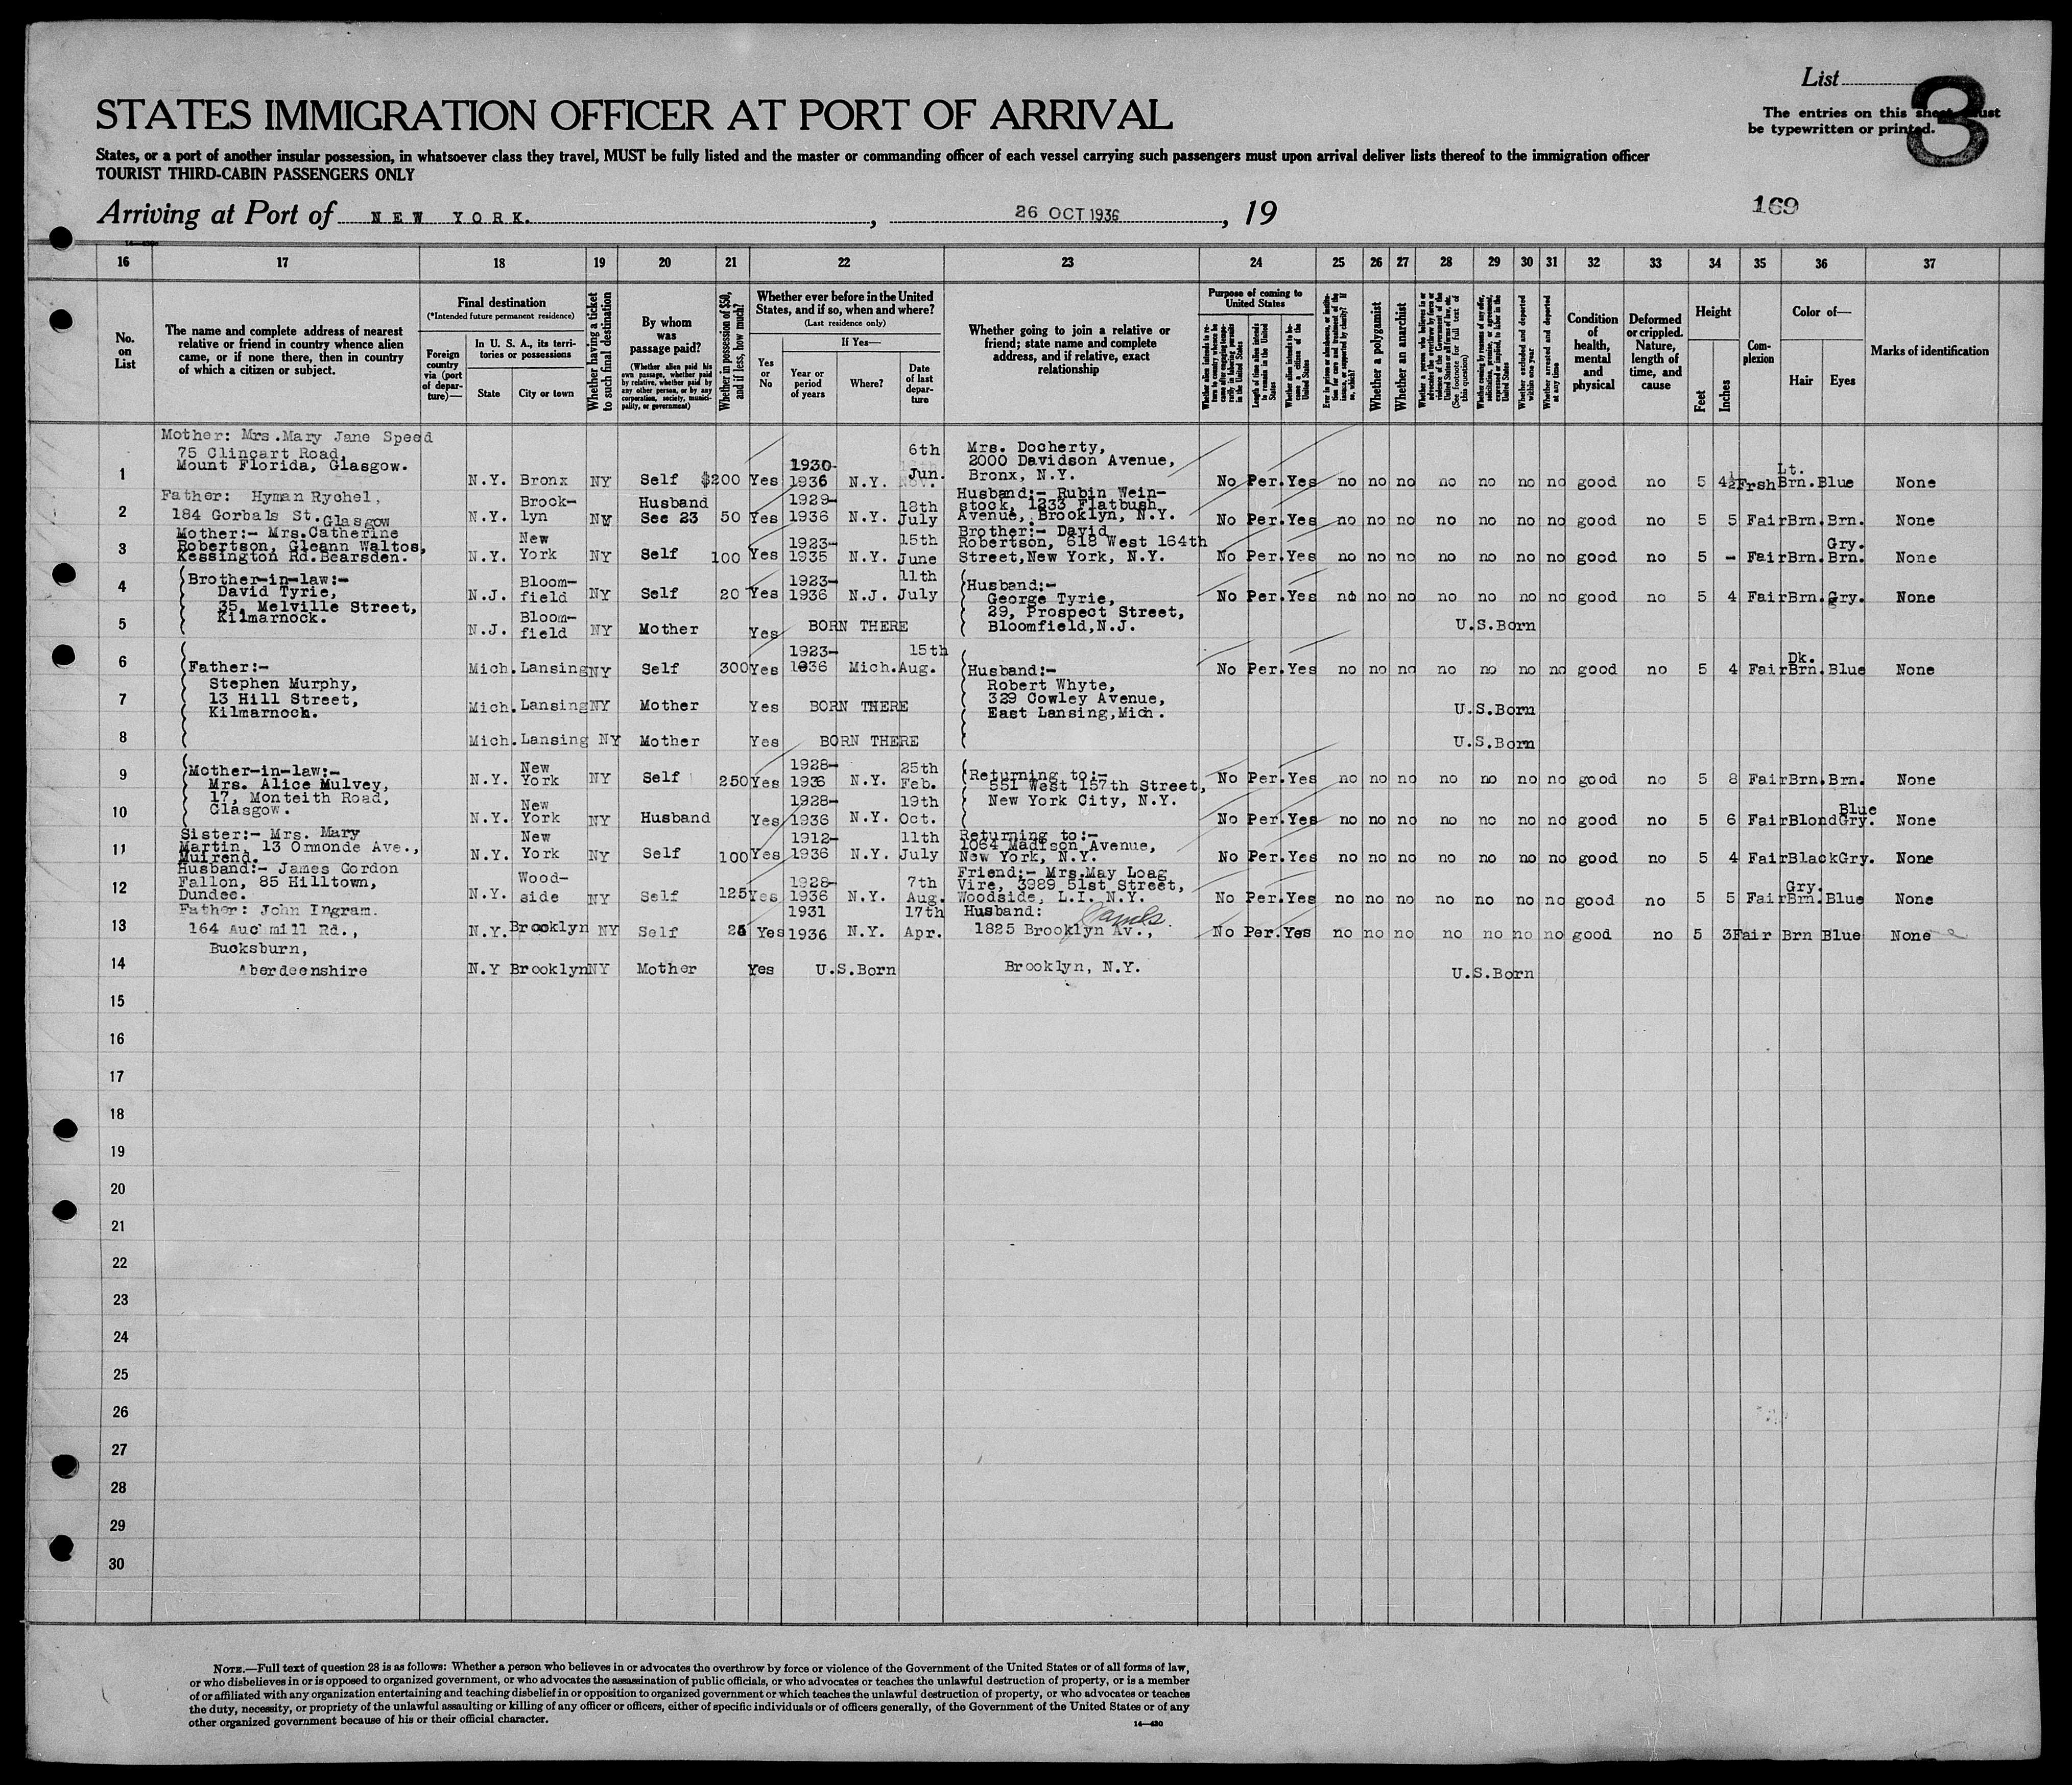 List 3
STATES IMMIGRATION OFFICER AT PORT OF ARRIVAL
The entries on this sheet must
be typewritten or printed.
States, or a port of another insular possession, in whatsoever class they travel, MUST be fully listed and the master or commanding officer of each vessel carrying such passengers must upon arrival deliver lists thereof to the immigration officer
TOURIST THIRD-CABIN PASSENGERS ONLY
Arriving at Port of NEW YORK. , 26 OCT 1936 , 19
169
16 17 18 19 20 21 22 23 24 25 26 27 28 29 30 31 32 33 34 35 36 37
No. on List
The name and complete address of nearest relative or friend in country whence alien came, or if none there, then in country of which a citizen or subject.
Final destination
(*Intended future permanent residence)
Foreign country via (port of departure)—
In U. S. A., its territories or possessions
State
City or town
Whether having a ticket to such final destination
By whom was passage paid?
(Whether alien paid his own passage, whether paid by relative, whether paid by any other person, or by any corporation, society, municipality, or government)
Whether in possession of $50, and if less, how much?
Whether ever before in the United States, and if so, when and where?
(Last residence only)
Yes or No
If Yes—
Year or period of years
Where?
Date of last departure
Whether going to join a relative or friend; state name and complete address, and if relative, exact relationship
Purpose of coming to United States
Length of time alien intends to remain in the United States
Whether alien intends to become a citizen of the United States
Whether a polygamist
Whether an anarchist
(See footnote for full text of this question)
Whether excluded and deported within one year
Whether arrested and deported at any time
Condition of health, mental and physical
Deformed or crippled. Nature, length of time, and cause
Height
Feet
Inches
Complexion
Color of—
Hair
Eyes
Marks of identification
1 Mother: Mrs.Mary Jane Speed 75 Clincart Road, Mount Florida, Glasgow. N.Y. Bronx NY Self $200 Yes 1930-1936 N.Y. 6th Jun. Mrs. Docherty, 2000 Davidson Avenue, Bronx, N.Y. No Per. Yes no no no no no no no good no 5 4½ Frsh Lt. Brn. Blue None
2 Father: Hyman Rychel, 184 Gorbals St. Glasgow N.Y. Brook-lyn NY Husband See 23 50 Yes 1929-1936 N.Y. 18th July Husband:- Rubin Wein-stock, 1233 Flatbush Avenue, Brooklyn, N.Y. No Per. Yes no no no no no no no good no 5 5 Fair Brn. Brn. None
3 Mother:- Mrs.Catherine Robertson, Gleann Waltos, Kessington Rd.Bearsden. N.Y. New York NY Self 100 Yes 1923-1935 N.Y. 15th June Brother:- David Robertson, 618 West 164th Street,New York, N.Y. No Per. Yes no no no no no no no good no 5 - Fair Brn. Gry. Brn. None
4 Brother-in-law:- David Tyrie, 35, Melville Street, Kilmarnock. N.J. Bloom-field NY Self 20 Yes 1923-1936 N.J. 11th July Husband:- George Tyrie, 29, Prospect Street, Bloomfield,N.J. No Per. Yes no no no no no no no good no 5 4 Fair Brn. gry. None
5 N.J. Bloom-field NY Mother Yes BORN THERE U.S.Born
6 Father:- Stephen Murphy, 13 Hill Street, Kilmarnock. Mich. Lansing NY Self 300 Yes 1923-1936 Mich. 15th Aug. Husband:- Robert Whyte, 329 Cowley Avenue, East Lansing,Mich. No Per. Yes no no no no no no no good no 5 4 Fair Dk. Brn. Blue None
7 Mich. Lansing NY Mother Yes BORN THERE U.S.Born
8 Mich. Lansing NY Mother Yes BORN THERE U.S.Born
9 Mother-in-law:- Mrs. Alice Mulvey, 17, Monteith Road, Glasgow. N.Y. New York NY Self 250 Yes 1928-1936 N.Y. 25th Feb. Returning to:- 551 West 157th Street, New York City, N.Y. No Per. Yes no no no no no no no good no 5 8 Fair Brn. Brn. None
10 N.Y. New York NY Husband Yes 1928-1936 N.Y. 19th Oct. No Per. Yes no no no no no no no good no 5 6 Fair Blond Blue Gry. None
11 Sister:- Mrs. Mary Martin, 13 Ormonde Ave., Muirend. N.Y. New York NY Self 100 Yes 1912-1936 N.Y. 11th July Returning to:- 1064 Madison Avenue, New York, N.Y. No Per. Yes no no no no no no no good no 5 4 Fair Black Gry. None
12 Husband:- James Gordon Fallon, 85 Hilltown, Dundee. N.Y. Wood-side NY Self 125 Yes 1928-1936 N.Y. 7th Aug. Friend:- Mrs.May Loag Vire, 3989 51st Street, Woodside, L.I. N.Y. No Per. Yes no no no no no no no good no 5 5 Fair Gry. Brn. Blue None
13 Father: John Ingram. 164 Auchmill Rd., Bucksburn, N.Y. Brooklyn NY Self Yes 1931 1936 N.Y. 17th Apr. Husband: James 1825 Brooklyn Av., No Per. Yes no no no no no no no good no 5 3 Fair Brn Blue None
14 Aberdeenshire N.Y Brooklyn NY Mother Yes U.S.Born Brooklyn, N.Y. U.S.Born
15
16
17
18
19
20
21
22
23
24
25
26
27
28
29
30
NOTE.—Full text of question 28 is as follows: Whether a person who believes in or advocates the overthrow by force or violence of the Government of the United States or of all forms of law,
or who disbelieves in or is opposed to organized government, or who advocates the assassination of public officials, or who advocates or teaches the unlawful destruction of property, or is a member
of or affiliated with any organization entertaining and teaching disbelief in or opposition to organized government or which teaches the unlawful destruction of property, or who advocates or teaches
the duty, necessity, or propriety of the unlawful assaulting or killing of any officer or officers, either of specific individuals or of officers generally, of the Government of the United States or of any
other organized government because of his or their official character.
14—430